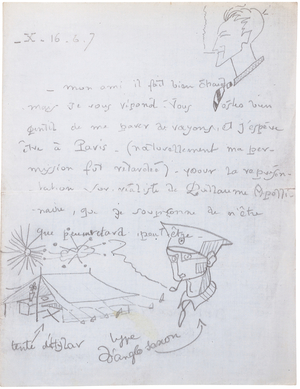 _X. 16.6.7
_ mon ami il fut bien
mais je vous répond: Vous bien
gentil de me parler de rayons, et j'espère
être à Paris _ (naturellement ma per-
mission fut retardée) _ pour la représen-
tation _ sur réaliste de Guillaume Apolli-
naire, que je soupçonne de n'être
que peut être
tente
type
d'anglo saxon